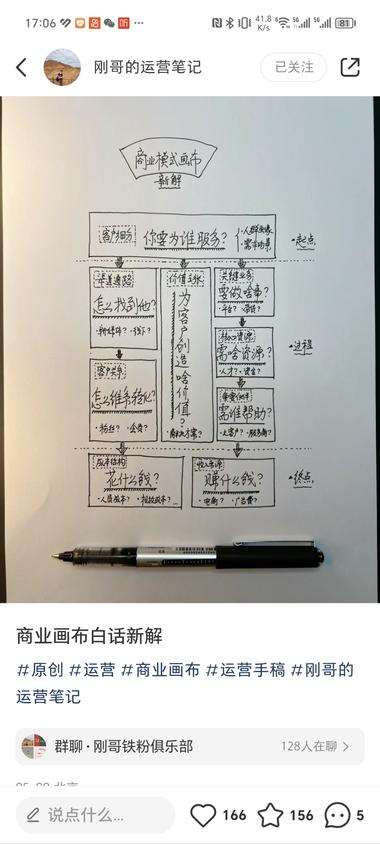 17:06
41.8
K/s
5G
5G
81
刚哥的运营笔记
已关注
商业模式画布
新解
客户细分
你要为谁服务?
·人群画像
·需求场景
·起点
渠道通路
怎么找到他?
·新媒体? ·线下?
客户关系
怎么维系转化?
·粉丝? ·会员?
价值主张
为客户创造啥价值?
·解决方案?
关键业务
要做啥事?
·平台? ·渠道?
核心资源
需啥资源?
·人才? ·资金?
重要伙伴
需谁帮助?
·大客户? ·服务商?
·过程
成本结构
花什么钱?
·人员成本? ·投放成本?
收入来源
赚什么钱?
·电商? ·广告费?
·终点
商业画布白话新解
#原创 #运营 #商业画布 #运营手稿 #刚哥的
运营笔记
群聊·刚哥铁粉俱乐部
128人在聊
说点什么...
166
156
5